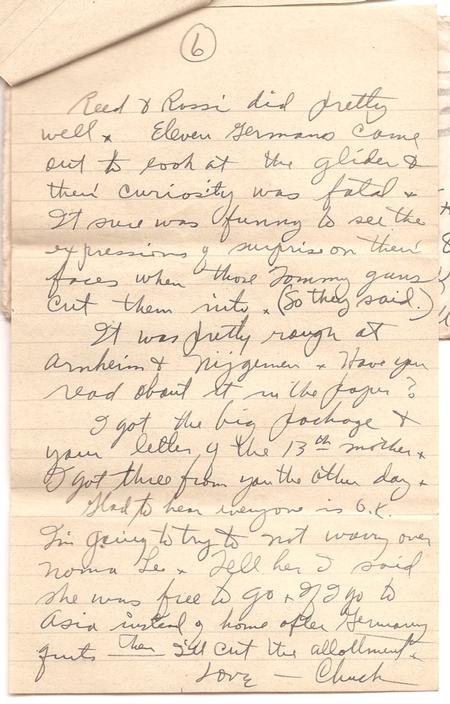 6
Reed & Rossi did pretty
well x Eleven Germans came
out to look at the glider &
their curiosity was fatal x
It sure was funny to see the
expressions of surprise on their
faces when those Tommy guns
cut them into x (So they said.)
It was pretty rough at
Arnheim & Nijgemen x Have you
read about it in the paper?
I got the big package &
your letter of the 13th mother x
I got three from you the other day x
Glad to hear everyone is O.K.
I'm going to try to not worry over
Norma Le x Tell her I said
she was free to go x If I go to
Asia instead of home after Germany
quits then I'll cut the allotment x
Love - Chuck